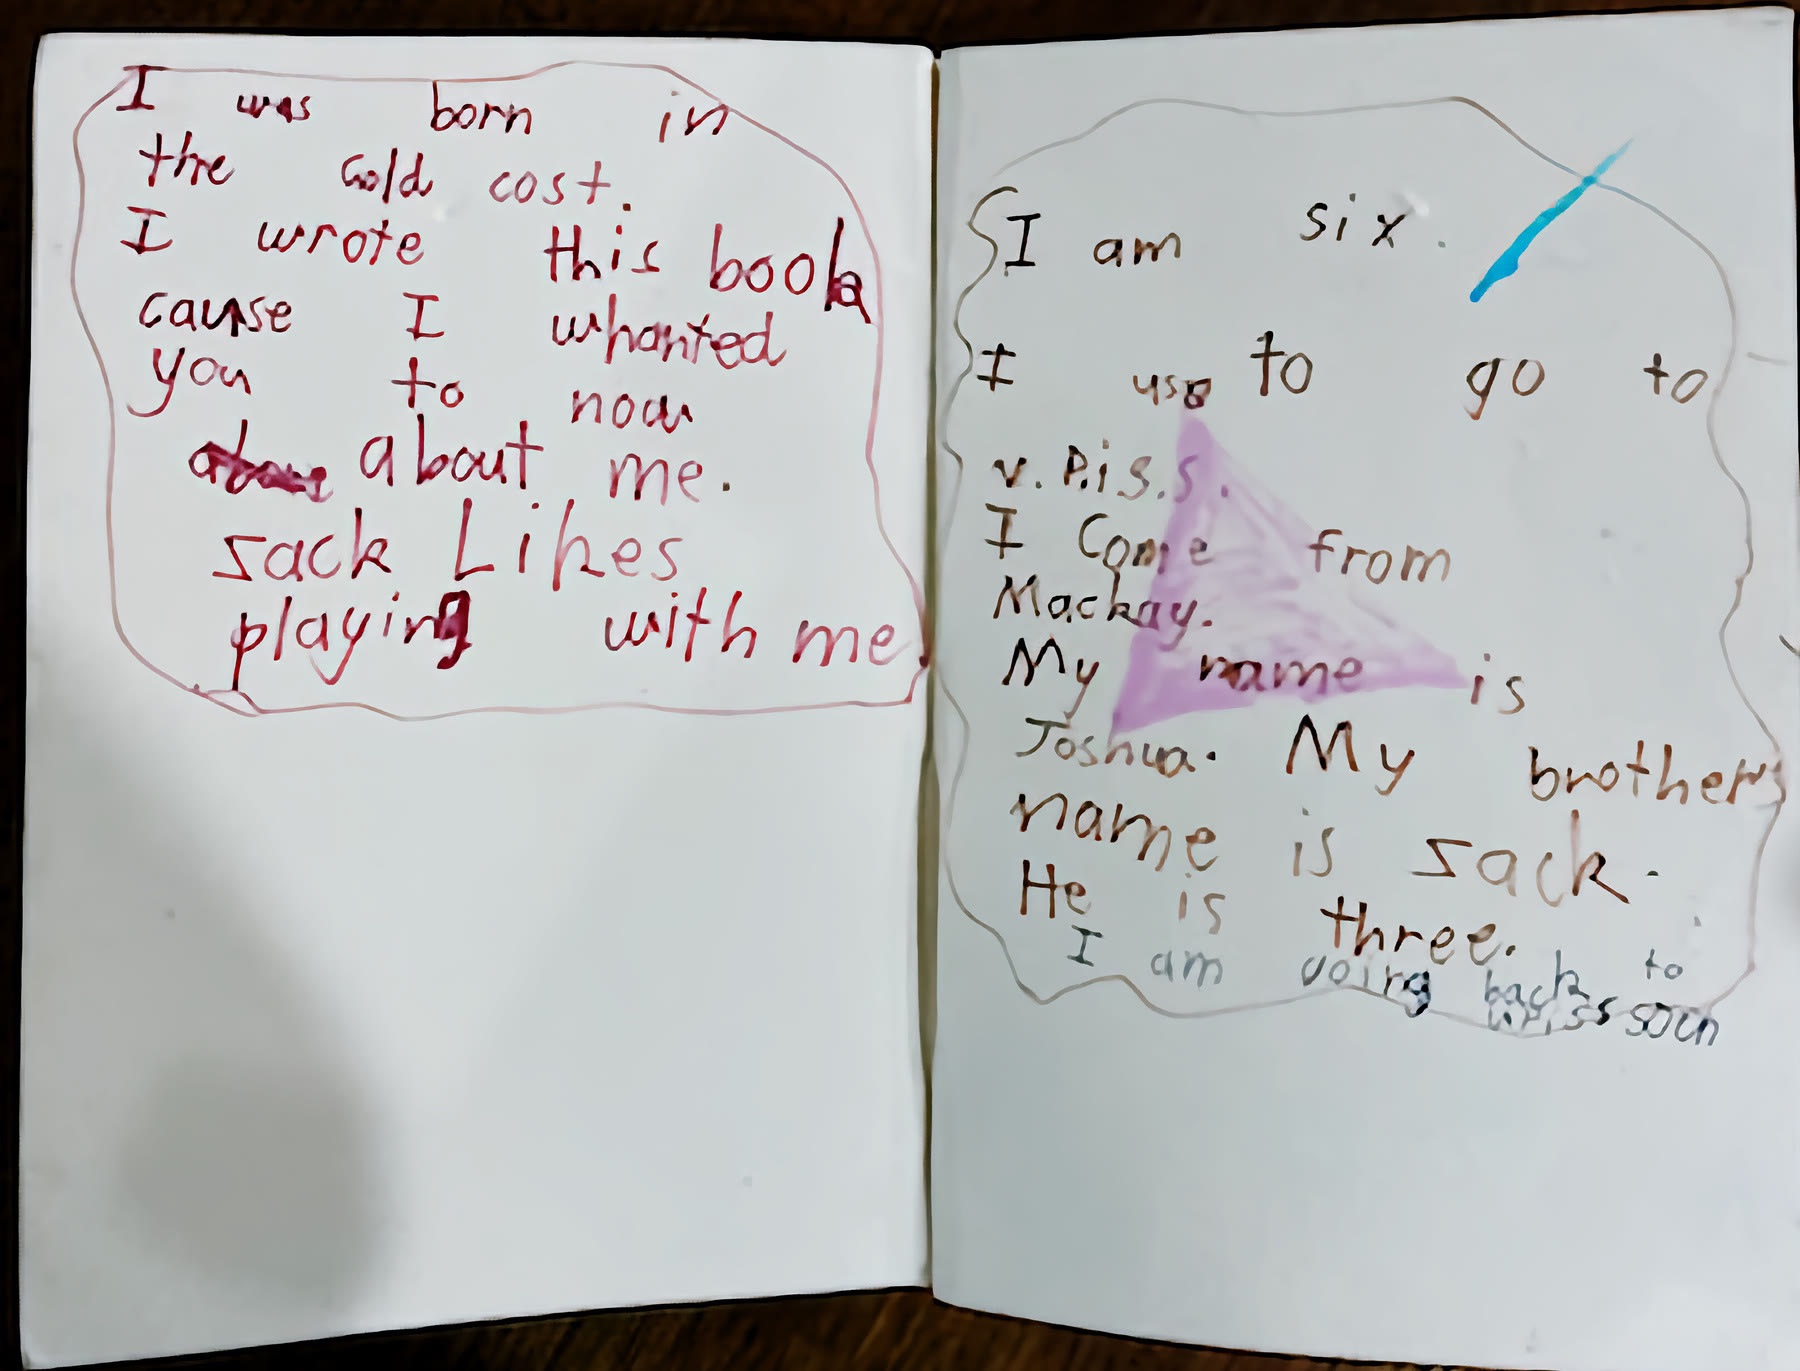 I was born in
the Gold cost.
I wrote this book
cause I whanted
you to now
about me.
sack Likes
playing with me.
I am six.
I use to go to
v.P.i S.S.
I Come from
Mackay.
My name is
Joshua. My brothers
name is sack.
He is three.
I am going back to
soon